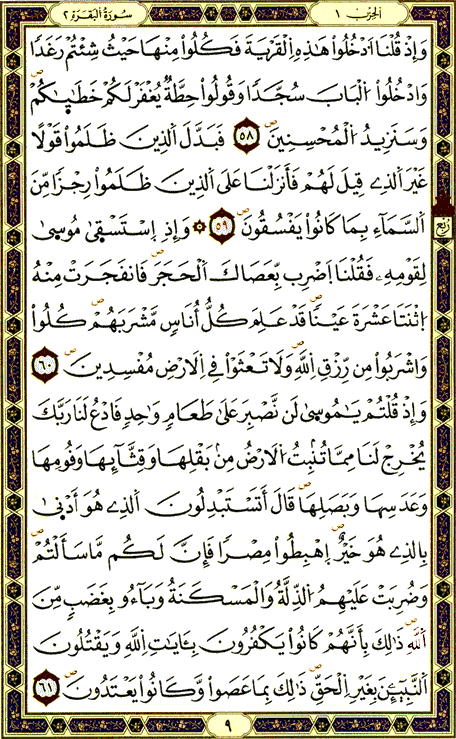 سُورَةُ الْبَقَرَةِ ٢
الحِزْبُ ١
وَإِذْ قُلْنَا اَدْخُلُوا۟ هَٰذِهِ اِلْقَرْيَةَ فَكُلُوا۟ مِنْهَا حَيْثُ شِئْتُمْ رَغَدًا
وَادْخُلُوا۟ الْبَابَ سُجَّدًا وَقُولُوا۟ حِطَّةٌ يُغْفَرْ لَكُمْ خَطَٰيَٰكُمْ
وَسَنَزِيدُ الْمُحْسِنِينَ ۖ ٥٨ فَبَدَّلَ اَلذِينَ ظَلَمُوا۟ قَوْلًا
غَيْرَ اَلذِے قِيلَ لَهُمْ فَأَنزَلْنَا عَلَى اَلذِينَ ظَلَمُوا۟ رِجْزًا مِّنَ
اَلسَّمَآءِ بِمَا كَانُوا۟ يَفْسُقُونَ ۖ ٥٩ ۞ وَإِذِ اِسْتَسْقَىٰ مُوسَىٰ
لِقَوْمِهِۦ فَقُلْنَا اَضْرِب بِّعَصَاكَ اَلْحَجَرَ ۖ فَانفَجَرَتْ مِنْهُ
اُثْنَتَا عَشْرَةَ عَيْنًا ۖ قَدْ عَلِمَ كُلُّ أُنَاسٍ مَّشْرَبَهُمْ ۖ كُلُوا۟
وَاشْرَبُوا۟ مِن رِّزْقِ اِللَّهِ ۖ وَلَا تَعْثَوْا۟ فِے اِلَارْضِ مُفْسِدِينَ ۖ ٦٠
وَإِذْ قُلْتُمْ يَٰمُوسَىٰ لَن نَّصْبِرَ عَلَىٰ طَعَامٍ وَٰحِدٍ فَادْعُ لَنَا رَبَّكَ
يُخْرِجْ لَنَا مِمَّا تُنۢبِتُ اُلَارْضُ مِنۢ بَقْلِهَا وَقِثَّآئِهَا وَفُومِهَا
وَعَدَسِهَا وَبَصَلِهَا ۖ قَالَ أَتَسْتَبْدِلُونَ اَلذِے هُوَ أَدْنَىٰ
بِالذِے هُوَ خَيْرٌ ۖ اِهْبِطُوا۟ مِصْرًا فَإِنَّ لَكُم مَّا سَأَلْتُمْ ۖ
وَضُرِبَتْ عَلَيْهِمُ اُلذِّلَّةُ وَالْمَسْكَنَةُ وَبَآءُو بِغَضَبٍ مِّنَ
اَللَّهِ ۖ ذَٰلِكَ بِأَنَّهُمْ كَانُوا۟ يَكْفُرُونَ بِـَٔايَٰتِ اِللَّهِ وَيَقْتُلُونَ
اَلنَّبِيٓـِٔينَ بِغَيْرِ اِلْحَقِّ ۖ ذَٰلِكَ بِمَا عَصَوا۟ وَّكَانُوا۟ يَعْتَدُونَ ۖ ٦١
رُبُع
٩